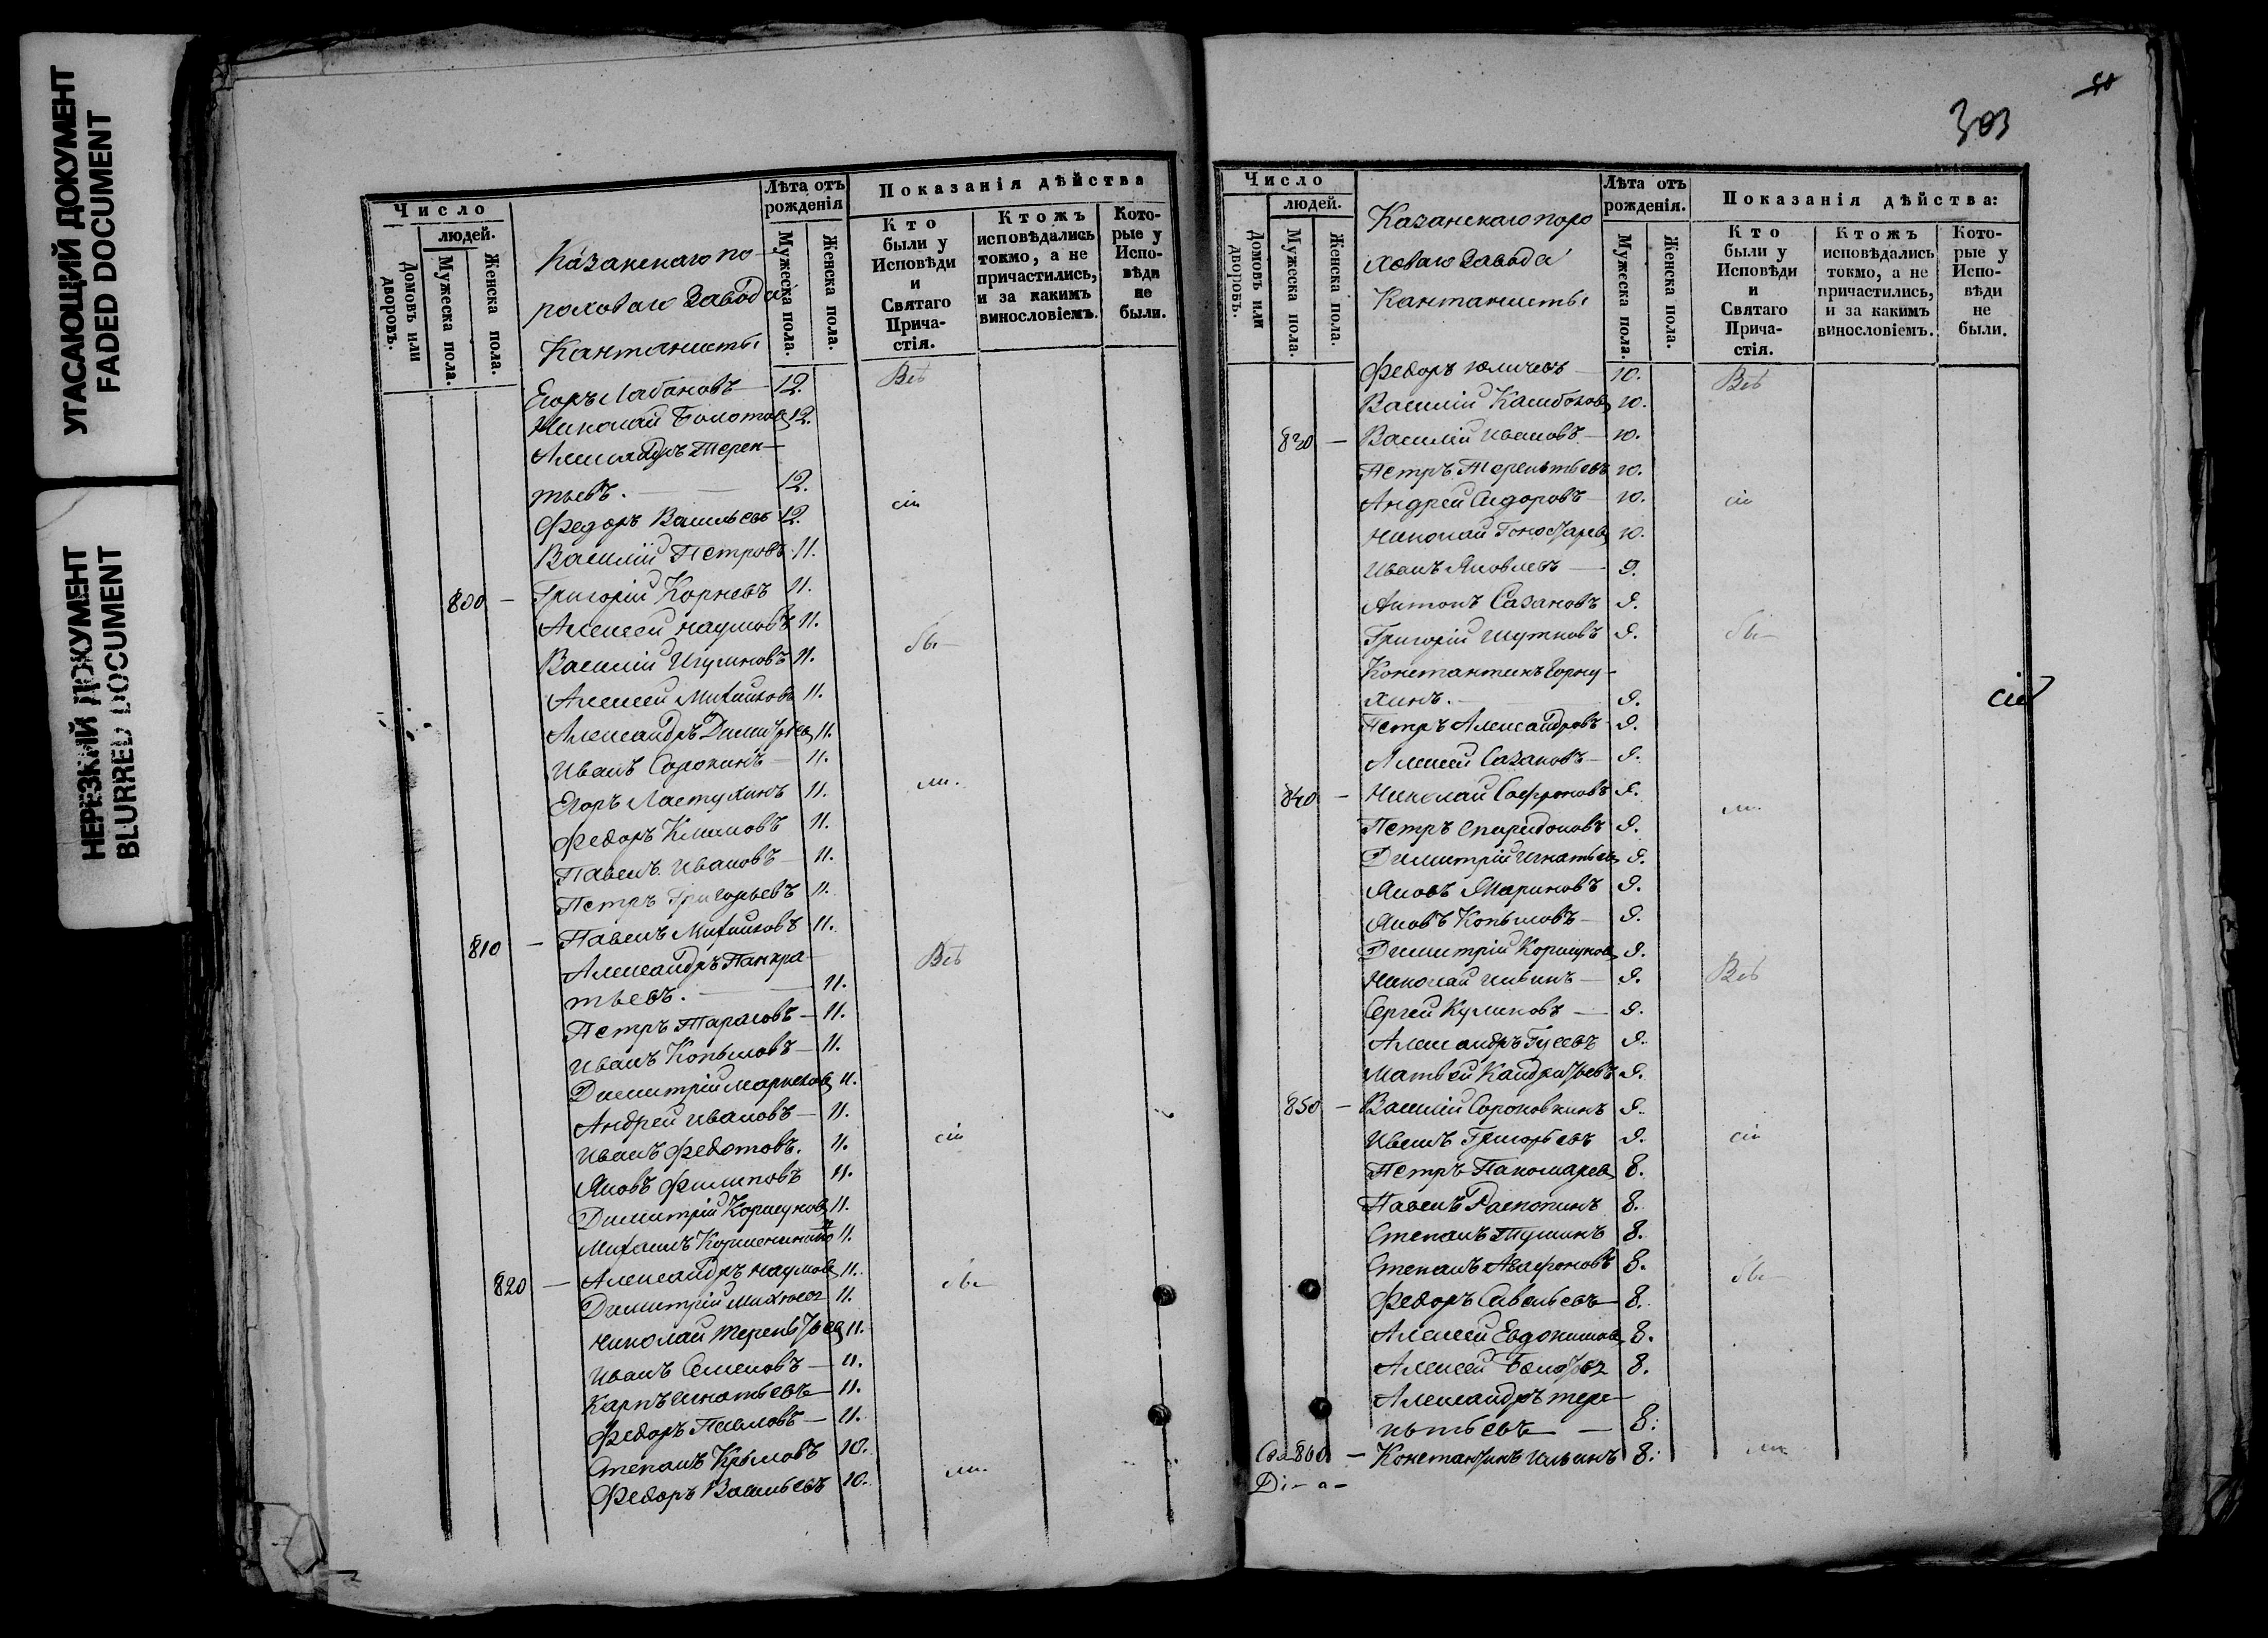 УГАСАЮЩИЙ ДОКУМЕНТ
FADED DOCUMENT
НЕРЕЗКИЙ ДОКУМЕНТ
BLURRED DOCUMENT
Число
людей.
Домовъ или дворовъ.
Мужеска пола.
Женска пола.
Казанскаго по-
роховаго Завода
Кантанисты
Лѣта отъ рожденія
Мужеска пола.
Женска пола.
Показанія дѣйства
Кто были у Исповѣди и Святаго Прича-стія.
Ктожъ исповѣдались токмо, а не причастились, и за какимъ винословіемъ.
Кото-рые у Испо-вѣди не были.
Егоръ Лабановъ — 12. Всѣ
Николай Болотов 12.
Александръ Терен-
тьевъ. — 12.
Федоръ Васильевъ 12. сіи
Василій Петровъ 11.
800 — Григорій Корневъ 11.
Алексей Наумовъ 11.
Василій 11. бы-
Алексей Михайловъ 11.
Александръ Димитріев 11.
Иванъ Сорокинъ — 11.
Егоръ Ластухинъ 11. ли.
Федоръ Климовъ 11.
Павелъ Ивановъ — 11.
Петръ Григорьевъ 11.
810 — Павелъ Михайловъ 11.
Александръ Панкра-
тьевъ. — 11. Всѣ
Петръ Тарасовъ — 11.
Иванъ Копыловъ — 11.
Димитрій 11.
Андрей Ивановъ — 11.
Иванъ Федотовъ. 11. сіи
Яковъ Филиповъ 11.
Димитрій Коршунов 11.
Михаилъ 11.
820 — Александръ Наумов 11. бы-
Димитрій 11.
Николай Терентьев 11.
Иванъ Семеновъ — 11.
Карпъ Игнатьевъ — 11.
Федоръ Павловъ — 11.
Степанъ Крыловъ 10.
Федоръ Васильевъ 10. ли.
303
Число
людей.
Домовъ или дворовъ.
Мужеска пола.
Женска пола.
Казанскаго поро
ховаго Завода
Кантанисты
Лѣта отъ рожденія.
Мужеска пола.
Женска пола.
Показанія дѣйства:
Кто были у Исповѣди и Святаго Прича-стія.
Ктожъ исповѣдались токмо, а не причастились, и за какимъ винословіемъ.
Кото-рые у Испо-вѣди не были.
Федоръ 10. Всѣ
Василій 10.
830 — Василій Ивановъ — 10.
Петръ Терентьевъ 10.
Андрей Сидоровъ — 10. сіи
Николай 10.
Иванъ Яковлевъ — 9.
Антонъ Сазановъ 9.
Григорій Шутковъ 9. бы-
Константинъ
хинъ. 9.
Петръ Александровъ 9.
Алексей Сазановъ — 9.
840 — Николай Софроновъ 9. ли.
Петръ Спиридоновъ 9.
Димитрій Игнатьев 9.
Яковъ Мариновъ 9.
Яковъ Копыловъ — 9.
Димитрій Коршунов 9.
Николай Ильинъ — 9. Всѣ
Сергей Куликовъ — 9.
Александръ Гусевъ 9.
Матвей Кандратьевъ 9.
850 — Василій Сороковкинъ 9.
Иванъ Григорьевъ 9. сіи
Петръ Панамарев 8.
Павелъ Распопинъ 8.
Степанъ 8.
Степанъ Агафоновъ 8. бы-
Федоръ Савельевъ — 8.
Алексей Евдокимов 8.
Алексей 8.
Александръ Тере-
нтьевъ — 8.
860 — Константинъ Ильинъ 8. ли
Сій